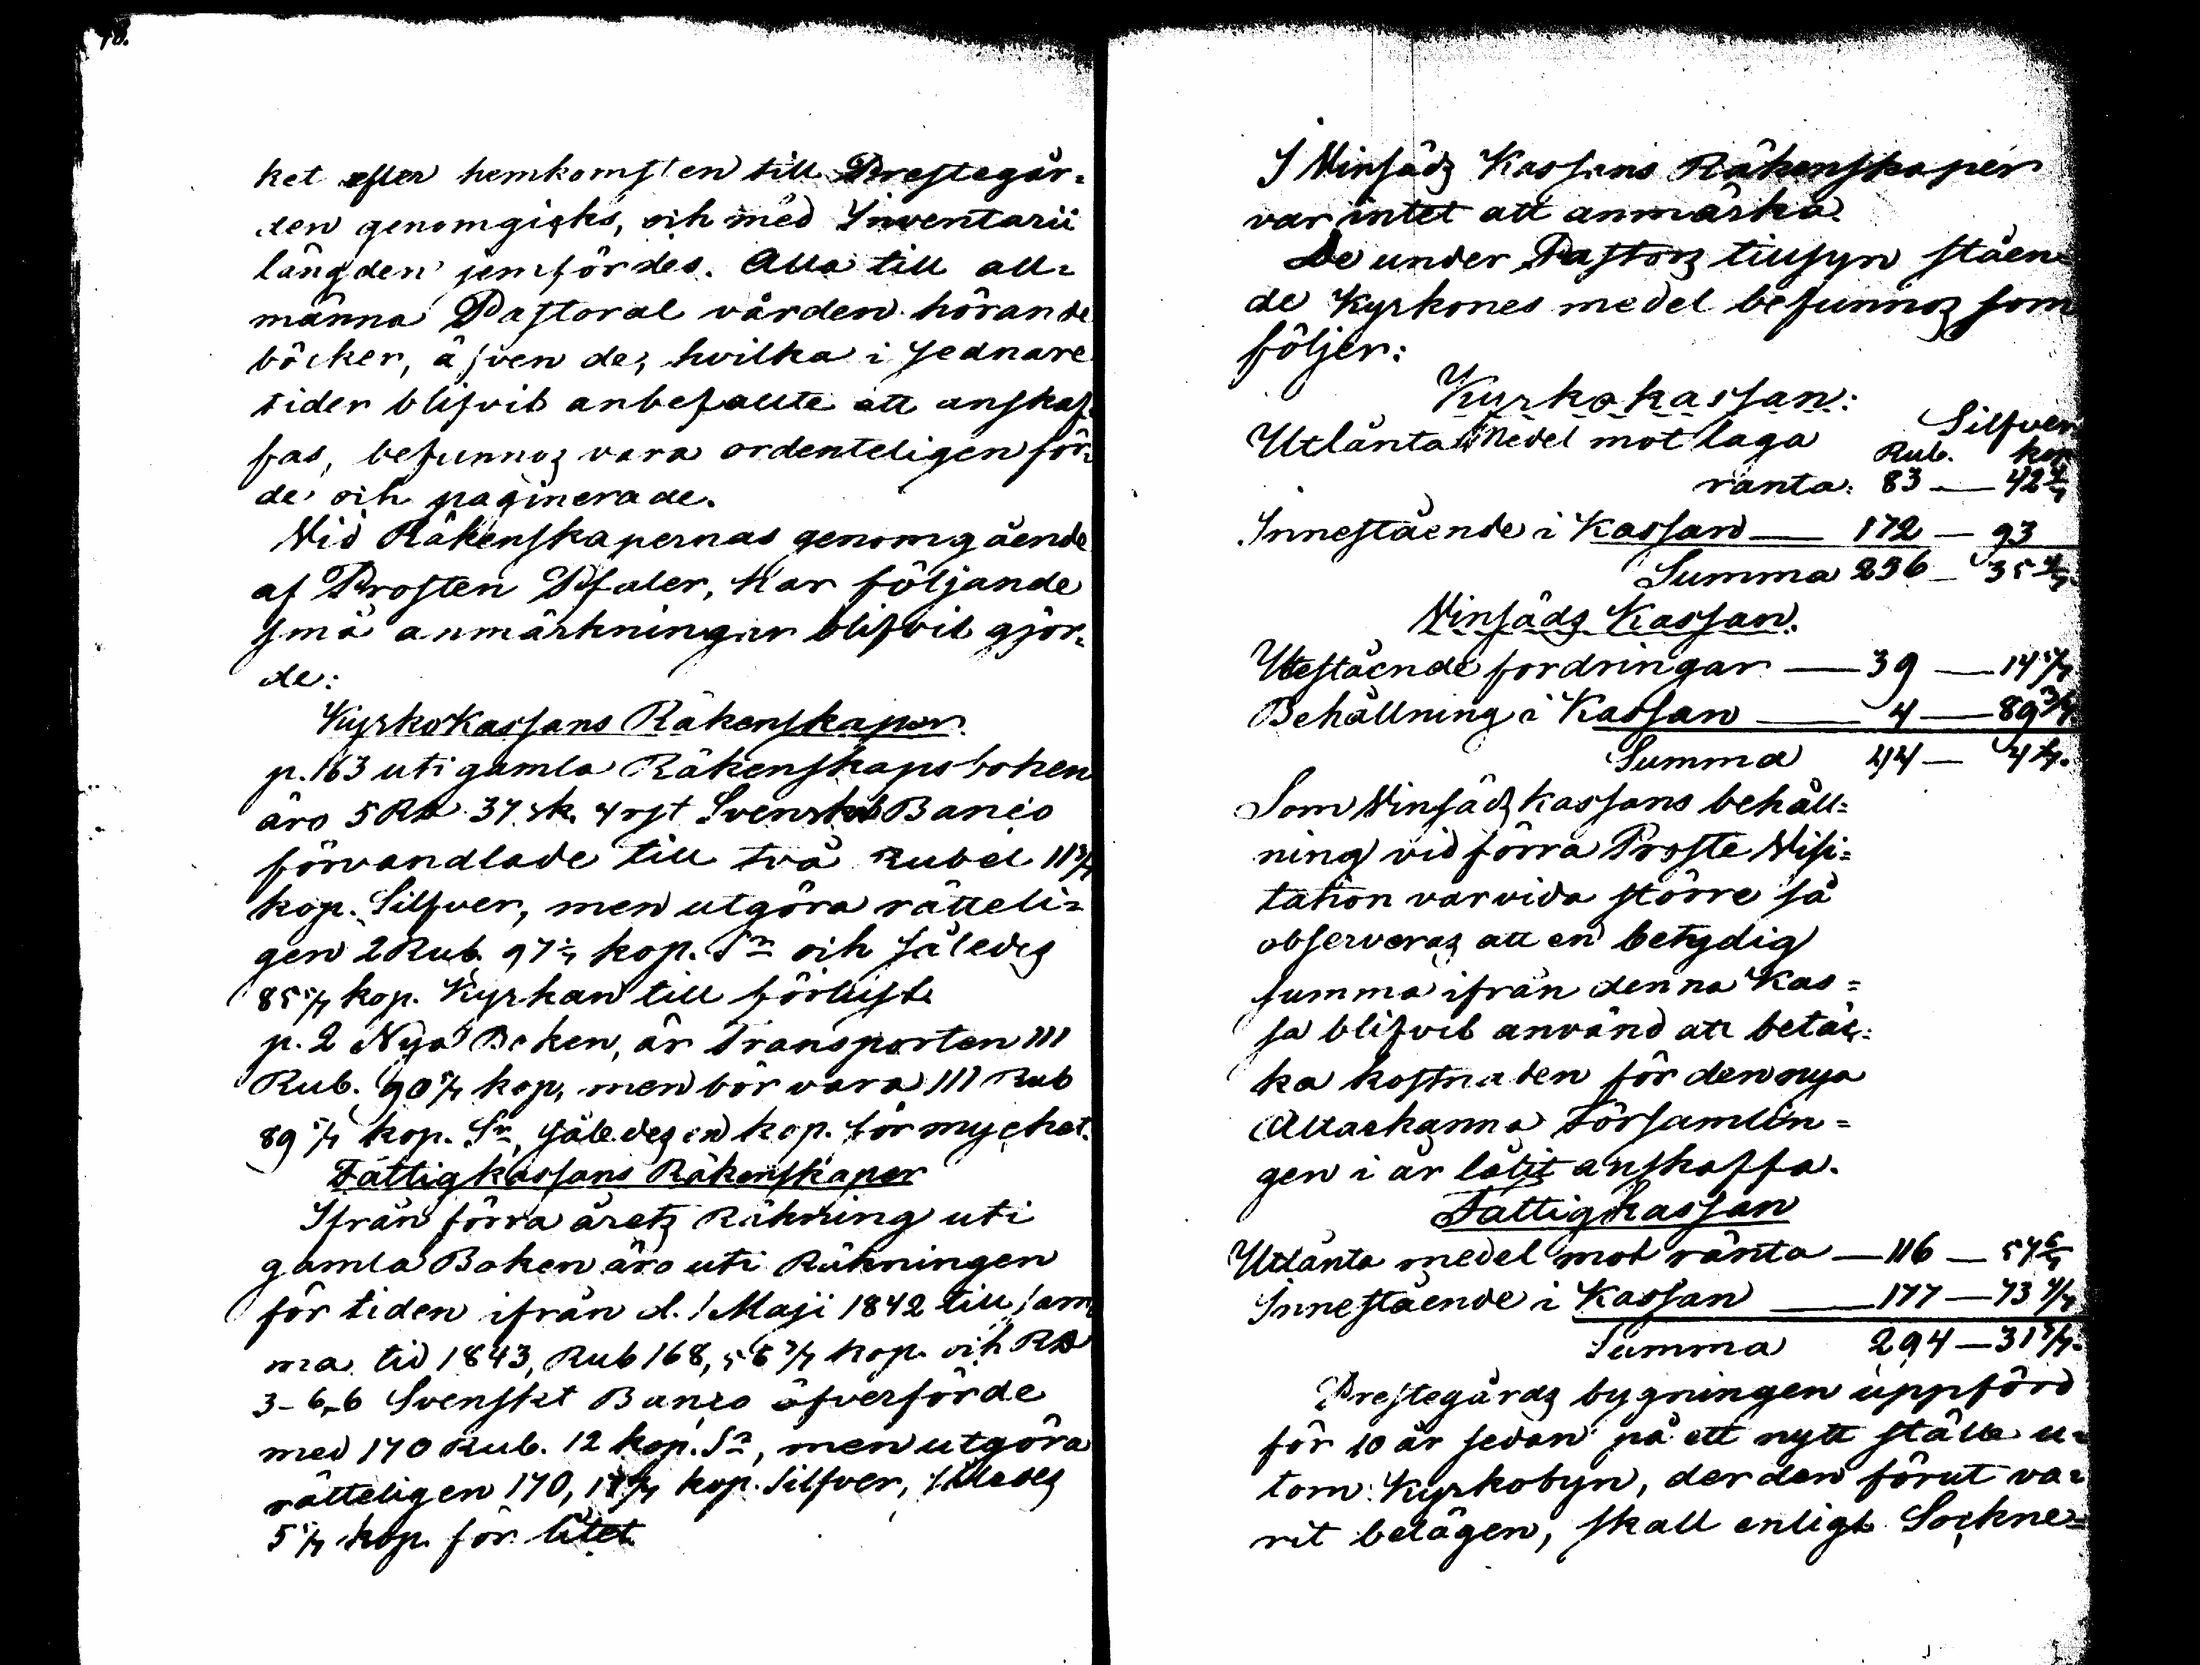 78.
ket efter hemkomsten till Prestegår=
den genomgicks, och med Inventarii
längden jemfördes. Alla till all=
männa Pastoral vården hörande
böcker, äfven de, hvilka i sednare
tider blifvit anbefallte att anskaf=
fas, befunnos vara ordenteligen för=
de och paginerade.
Vid Räkenskapernas genomgående
af Prosten Pfaler, har följande
små anmärkningar blifvit gjor=
de:
KyrkoKassans Räkenskaper.
p. 163 uti gamla Räkenskapsboken
äro 5 Rd 37 sk. 4 rst Svenskt Banco
förvandlade till två Rubel 11 5/7
kop. Silfver, men utgöra rätteli=
gen 2 Rub. 97 kop. Sr och således
85 5/7 kop. Kyrkan till förlust.
p. 2 Nya Boken, är Transporten 111
Rub. 90 5/7 kop, men bör vara 111 Rub
89 5/7 kop. Sr, således en kop. för mycket.
Fattigkassans Räkenskaper
Ifrån förra årets Räkning uti
gamla Boken äro uti Räkningen
för tiden ifrån d. 1 Maji 1842 till sam=
ma tid 1843, Rub 168, kop. och Rd
3-6-6 Svenskt Banco öfverförde
med 170 Rub. 12 kop. Sr, men utgöra
rätteligen 170, kop. Silfver, således
5 5/7 kop. för litet.
I Vinsäds Kassans Räkenskaper
var intet att anmärka.
De under Pastors tillsyn ståen=
de Kyrkones medel befunnos som
följer:
Kyrkokassan:
Silfver
Utlånta Medel mot laga Rub. kop
ränta: 83 — 42 4/7
Innestående i Kassan — 172 — 93
Summa 256 — 35 4/7.
Vinsäds Kassan.
Utestående fordringar — 39 — 14 5/7
Behållning i Kassan — 4 — 89 3/7.
Summa 44 — 4 1/7.
Som Vinsäds kassans behåll=
ning vid förra Proste Visi=
tation var vida större så
observeras att en betydig
summa ifrån denna Kas=
sa blifvit använd att betäc=
ka kostnaden för den nya
Altarkanna Församlin=
gen i år låtit anskaffa.
Fattigkassan
Utlånta medel mot ränta — 116 — 57 6/7
Innestående i Kassan — 177 — 73 4/7
Summa 294 — 31 3/7.
Prestegårds bygningen uppförd
för 10 år sedan på ett nytt ställe u=
tom Kyrkobyn, der den förut va=
rit belägen, skall enligt Sockne=